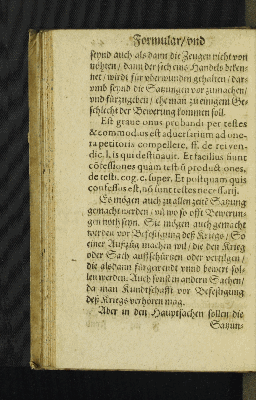 Formular/ vnd
seynd auch als dann die Zeugen nicht von
nöhten/ dann der sich eins Handels beken-
net/ wirdt für vberwunden gehalten/ dar-
umb seynd die Satzungen vor zumachen/
vnd fürzugeben/ ehe man zu einigem Ge-
schlecht der Bewerung kommen soll.
Est graue onus probandi per testes
& commodius est aduersarium ad one-
ra petitoris compellere, ff. de rei ven-
dic. l. is qui destinauit. Et facilius fiunt
cōfessiones quam test. & product ones,
de test. cog. e. super. Et postquam quis
confessus est, nō sunt testes necessarij.
Es mögen auch zu allen zeitē Satzung
gemacht werden/ vñ wo so offt Bewerun-
gen noth seyn. Sie mögen auch gemacht
werden vor Befestigung deß Kriegs/ So
einer Aufzüg machen wil/ die den Krieg
oder Sach auffschürtzen oder vertilgen/
die alsdann fürgewendt vnnd bewert sol-
len werden. Auch sonst in andern Sachen/
da man Kundtschafft vor Befestigung
deß Kriegs verhören mag.
Aber in den Hauptsachen sollen die
Satzun-